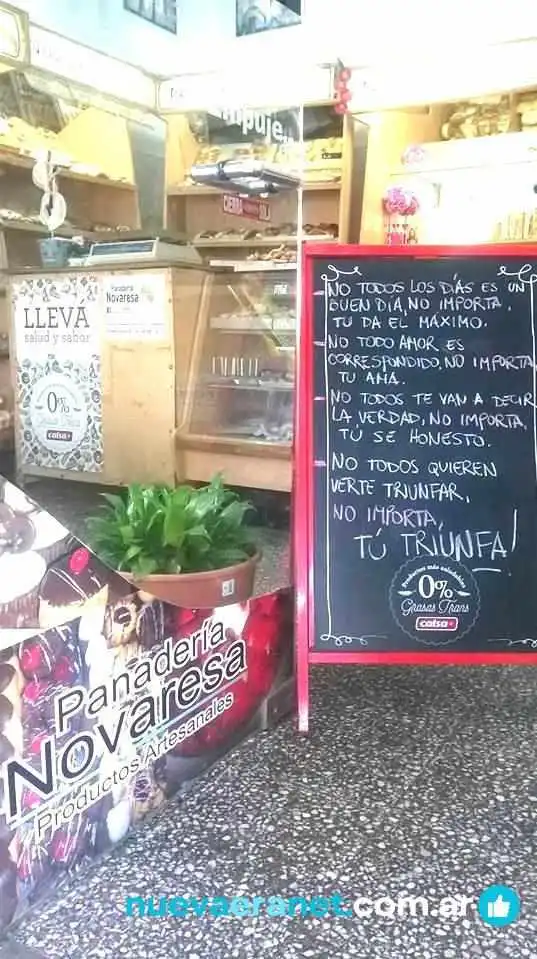 Empuje...
CIERRA SOLA
Panadería
Novaresa
LLEVA
salud y sabor
0%
Grasas Trans
calsa
NO TODOS LOS DÍAS ES UN
BUEN DIA, NO IMPORTA,
TU DA EL MÁXIMO.
NO TODO AMOR ES
CORRESPONDIDO, NO IMPORTA
TU AMA.
NO TODOS TE VAN A DECIR
LA VERDAD, NO IMPORTA,
TÚ SE HONESTO.
NO TODOS QUIEREN
VERTE TRIUNFAR,
NO IMPORTA,
TÚ TRIUNFA!
Productos más saludables
0%
Grasas Trans
calsa
Panadería
Novaresa
Productos Artesanales
nuevaeranet.com.ar